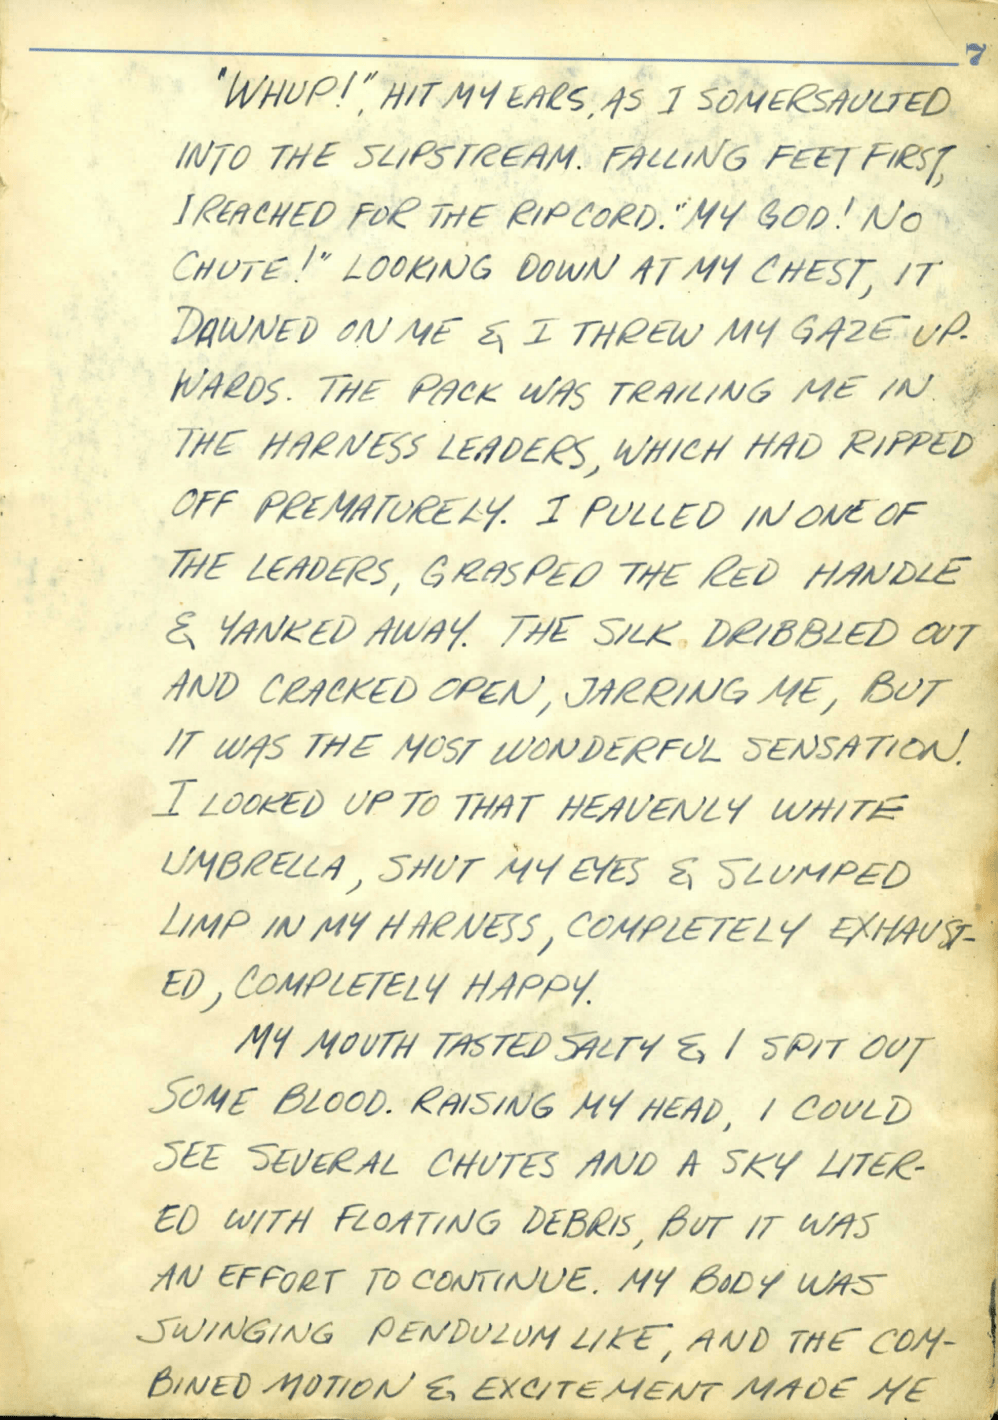 7
"WHUP!", HIT MY EARS, AS I SOMERSAULTED
INTO THE SLIPSTREAM. FALLING FEET FIRST,
I REACHED FOR THE RIPCORD. "MY GOD! NO
CHUTE!" LOOKING DOWN AT MY CHEST, IT
DAWNED ON ME & I THREW MY GAZE UP-
WARDS. THE PACK WAS TRAILING ME IN
THE HARNESS LEADERS, WHICH HAD RIPPED
OFF PREMATURELY. I PULLED IN ONE OF
THE LEADERS, GRASPED THE RED HANDLE
& YANKED AWAY. THE SILK DRIBBLED OUT
AND CRACKED OPEN, JARRING ME, BUT
IT WAS THE MOST WONDERFUL SENSATION!
I LOOKED UP TO THAT HEAVENLY WHITE
UMBRELLA, SHUT MY EYES & SLUMPED
LIMP IN MY HARNESS, COMPLETELY EXHAUST-
ED, COMPLETELY HAPPY.
MY MOUTH TASTED SALTY & I SPIT OUT
SOME BLOOD. RAISING MY HEAD, I COULD
SEE SEVERAL CHUTES AND A SKY LITER-
ED WITH FLOATING DEBRIS, BUT IT WAS
AN EFFORT TO CONTINUE. MY BODY WAS
SWINGING PENDULUM LIKE, AND THE COM-
BINED MOTION & EXCITEMENT MADE ME